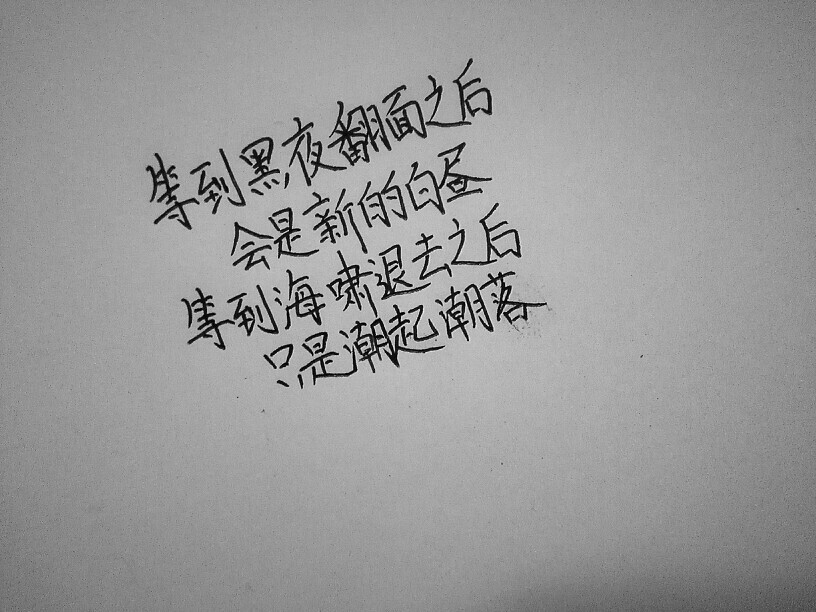 等到黑夜翻面之后
会是新的白昼
等到海啸退去之后
只是潮起潮落